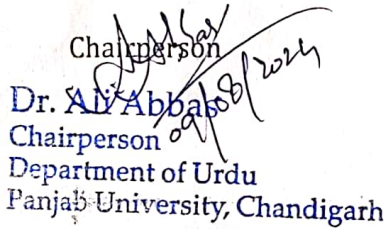 Chairperson
Dr. Ali Abbas
09/08/2024
Chairperson
Department of Urdu
Panjab University, Chandigarh